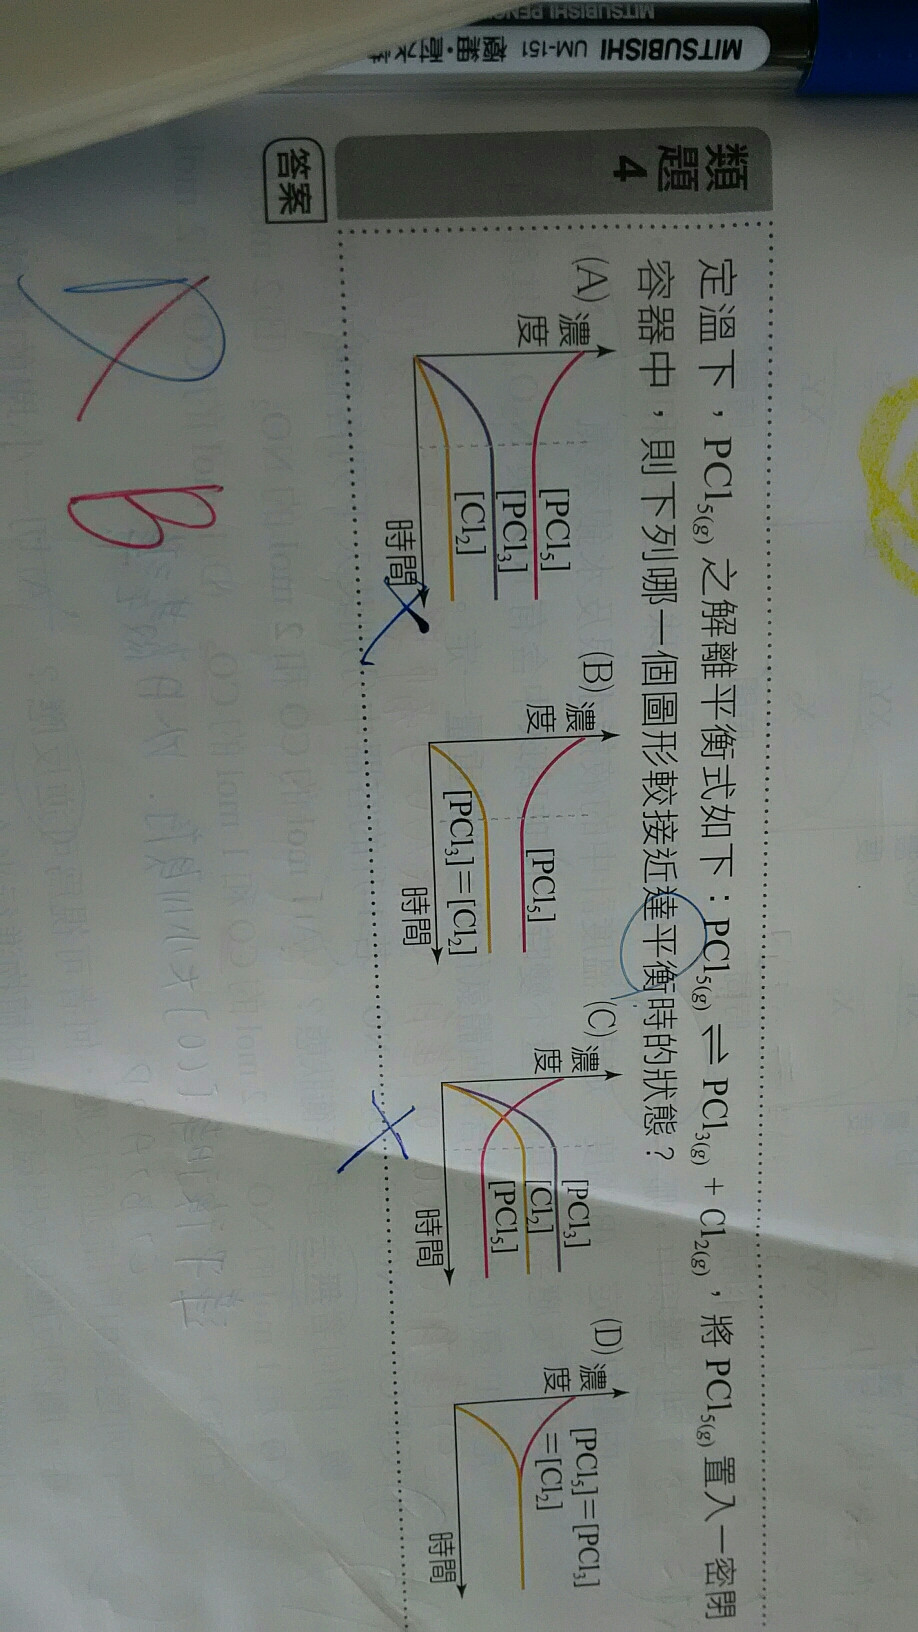 MITSUBISHI PENC
MITSUBISHI UM-151
類題 4
定溫下，PCl₅(g) 之解離平衡式如下：PCl₅(g) ⇌ PCl₃(g) + Cl₂(g)，將 PCl₅(g) 置入一密閉
容器中，則下列哪一個圖形較接近達平衡時的狀態？
(A) 濃度
[PCl₅]
[PCl₃]
[Cl₂]
時間
(B) 濃度
[PCl₅]
[PCl₃]＝[Cl₂]
時間
(C) 濃度
[PCl₃]
[Cl₂]
[PCl₅]
時間
(D) 濃度
[PCl₅]＝[PCl₃]
＝[Cl₂]
時間
答案
D B